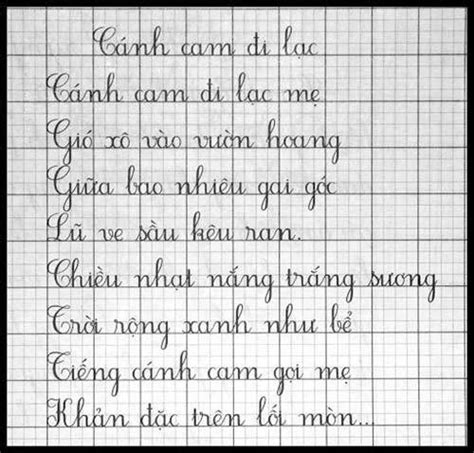 Cánh cam đi lạc
Cánh cam đi lạc mẹ
Gió xô vào vườn hoang
Giữa bao nhiêu gai góc
Lũ ve sầu kêu ran.
Chiều nhạt nắng trắng sương
Trời rộng xanh như bể
Tiếng cánh cam gọi mẹ
Khản đặc trên lối mòn...